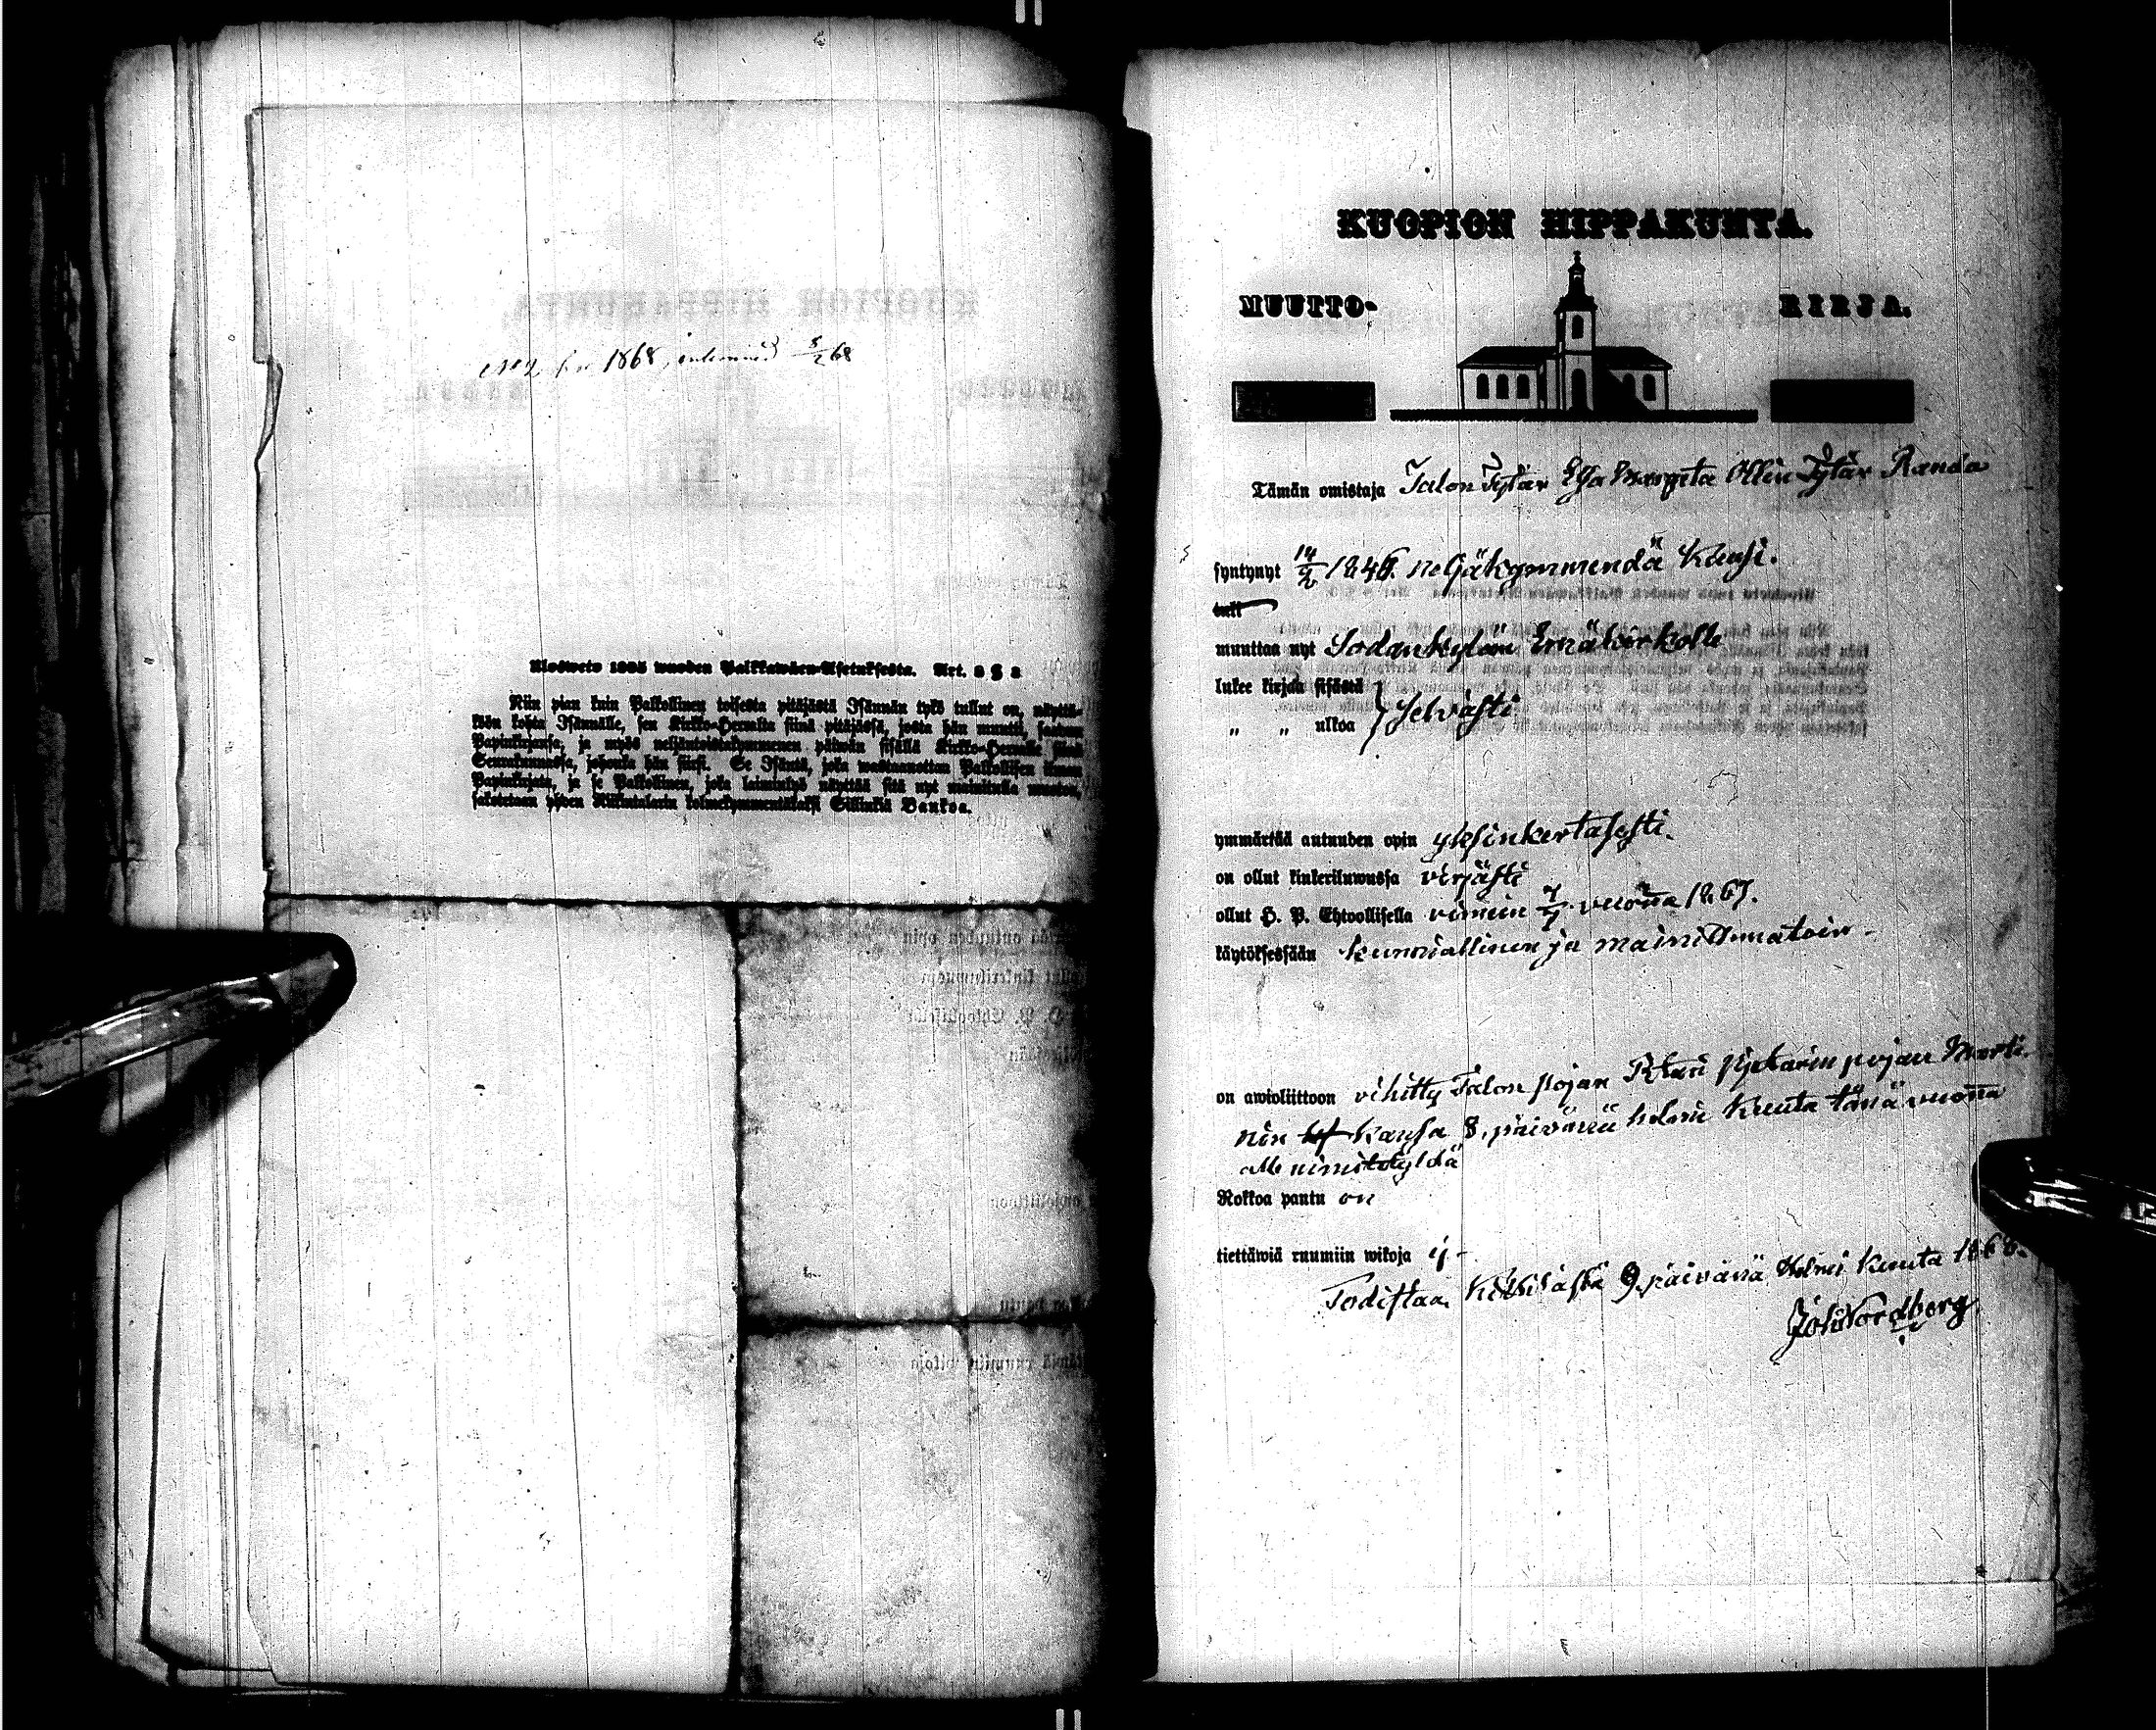 No 2 för 1868, inlemnad 8/2 68
Uloswéto 1805 wuoden Palkkawäen-Asetuksesta. Art. 3 § 3
Niin pian kuin Palkollinen toisesta pitäjästä Isännän tykö tullut on, näyttä-
köön kohta Isännälle, sen Kirkko-Herralta siinä pitäjässä, josta hän muutti, saatuun
Papinkirjansa, ja myös neljäntoistakymmenen päiwän sisällä Kirkko-Herralle siinä
Seurakunnassa, johonka hän siirsi. Se Isäntä, joka wastaanottaa Palkollisen ilman
Papinkirjata, ja se Palkollinen, joka laiminlyö näyttää sitä nyt mainitulla muoton,
sakotetaan yhden Riikintalarin kolmekymmentäkaksi Sillinkiä Bankoa.
KUOPION HIPPAKUNTA.
MUUTTO- KIRJA.
Tämän omistaja Talon Tytär Efva Margeta Ollin Tytär Randa
syntynyt 14/2 1846. neljäkymmendä Kuusi.
tuli
muuttaa nyt Sodankylän Emäkirkolle
lukee kirjan sisästä } Selvästi
„ „ ulkoa
ymmärtää autuuden opin yksinkertasesti.
on ollut kinkeriluwussa virjästi
ollut H. P. Ehtoollisella viimein 7/7 vuonna 1867.
käytöksessään kunniallinen ja mainittumatoin.
on awioliittoon vihitty Talon pojan Pjetarin pojan Marti-
nin Kansa 8. päivänä helmi Kuuta tänä vuonna
alle nimitetyldä
Rokkoa pantu on
tiettäwiä ruumiin wikoja ij.
Todistaa Kittilästä 9 päivänä Helmi Kuuta 1868.
Joh Nordberg